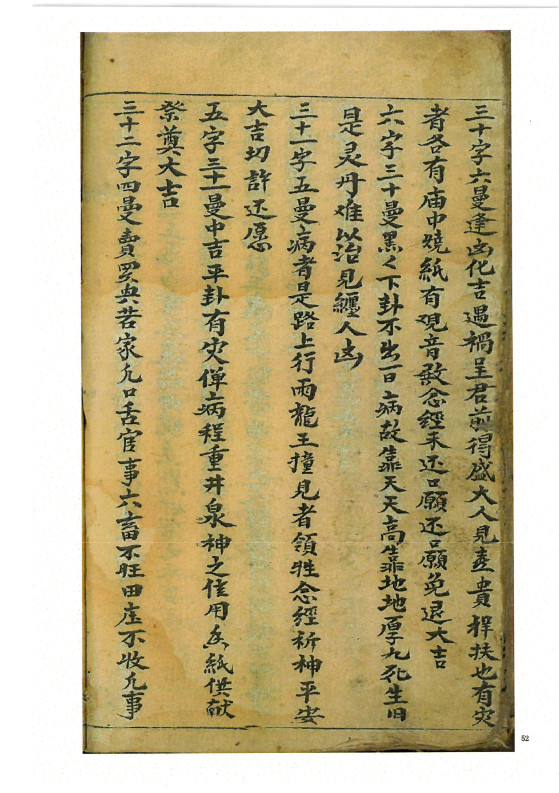 三十字六曼逢凶化吉遇禍呈君前得盛大人見喜貴撑扶也有灾
者各有庙中燒紙有观音敬念經未还口願还口願免退大吉
六字三十曼黑々下卦不出一日病故靠天天高靠地地厚九死生旧
是灵丹难以治見纏人凶
三十一字五曼病者是路上行雨龍王撞見者領牲念經祈神平安
大吉切許还愿
五字三十一曼中吉平卦有灾僤病程重井泉神之住用香紙供献
祭奠大吉
三十二字四曼賣買與若家凡口舌官事六畜不旺田庄不收凡事
52